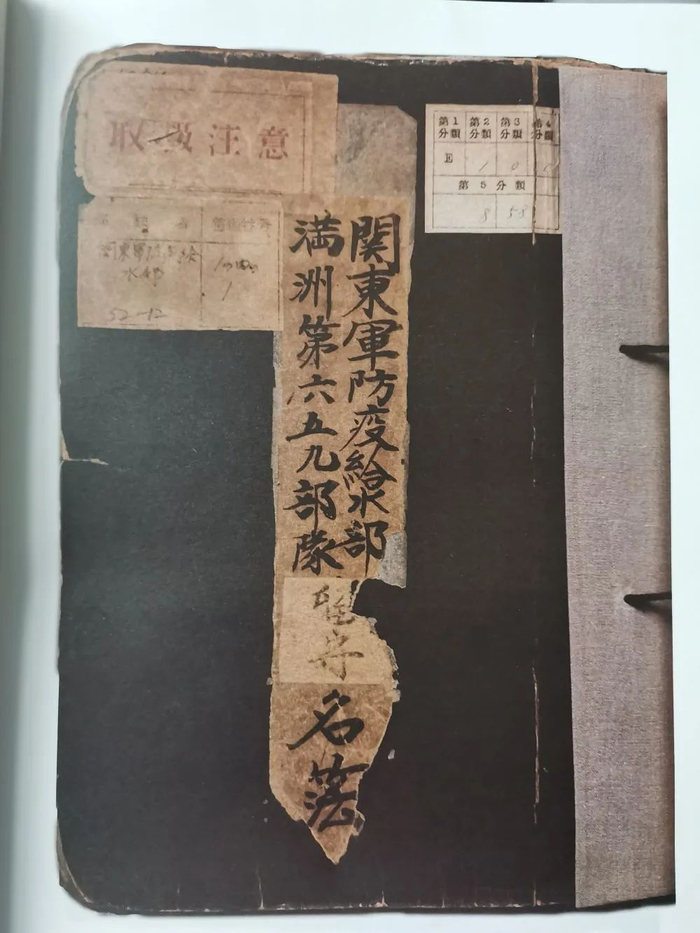 取扱注意
第1分類 第2分類 第3分類 第4分類
E 1 0
第5分類
関東軍防疫給
水部
52-12
関東軍防疫給水部
満洲第六五九部隊
留守
名簿